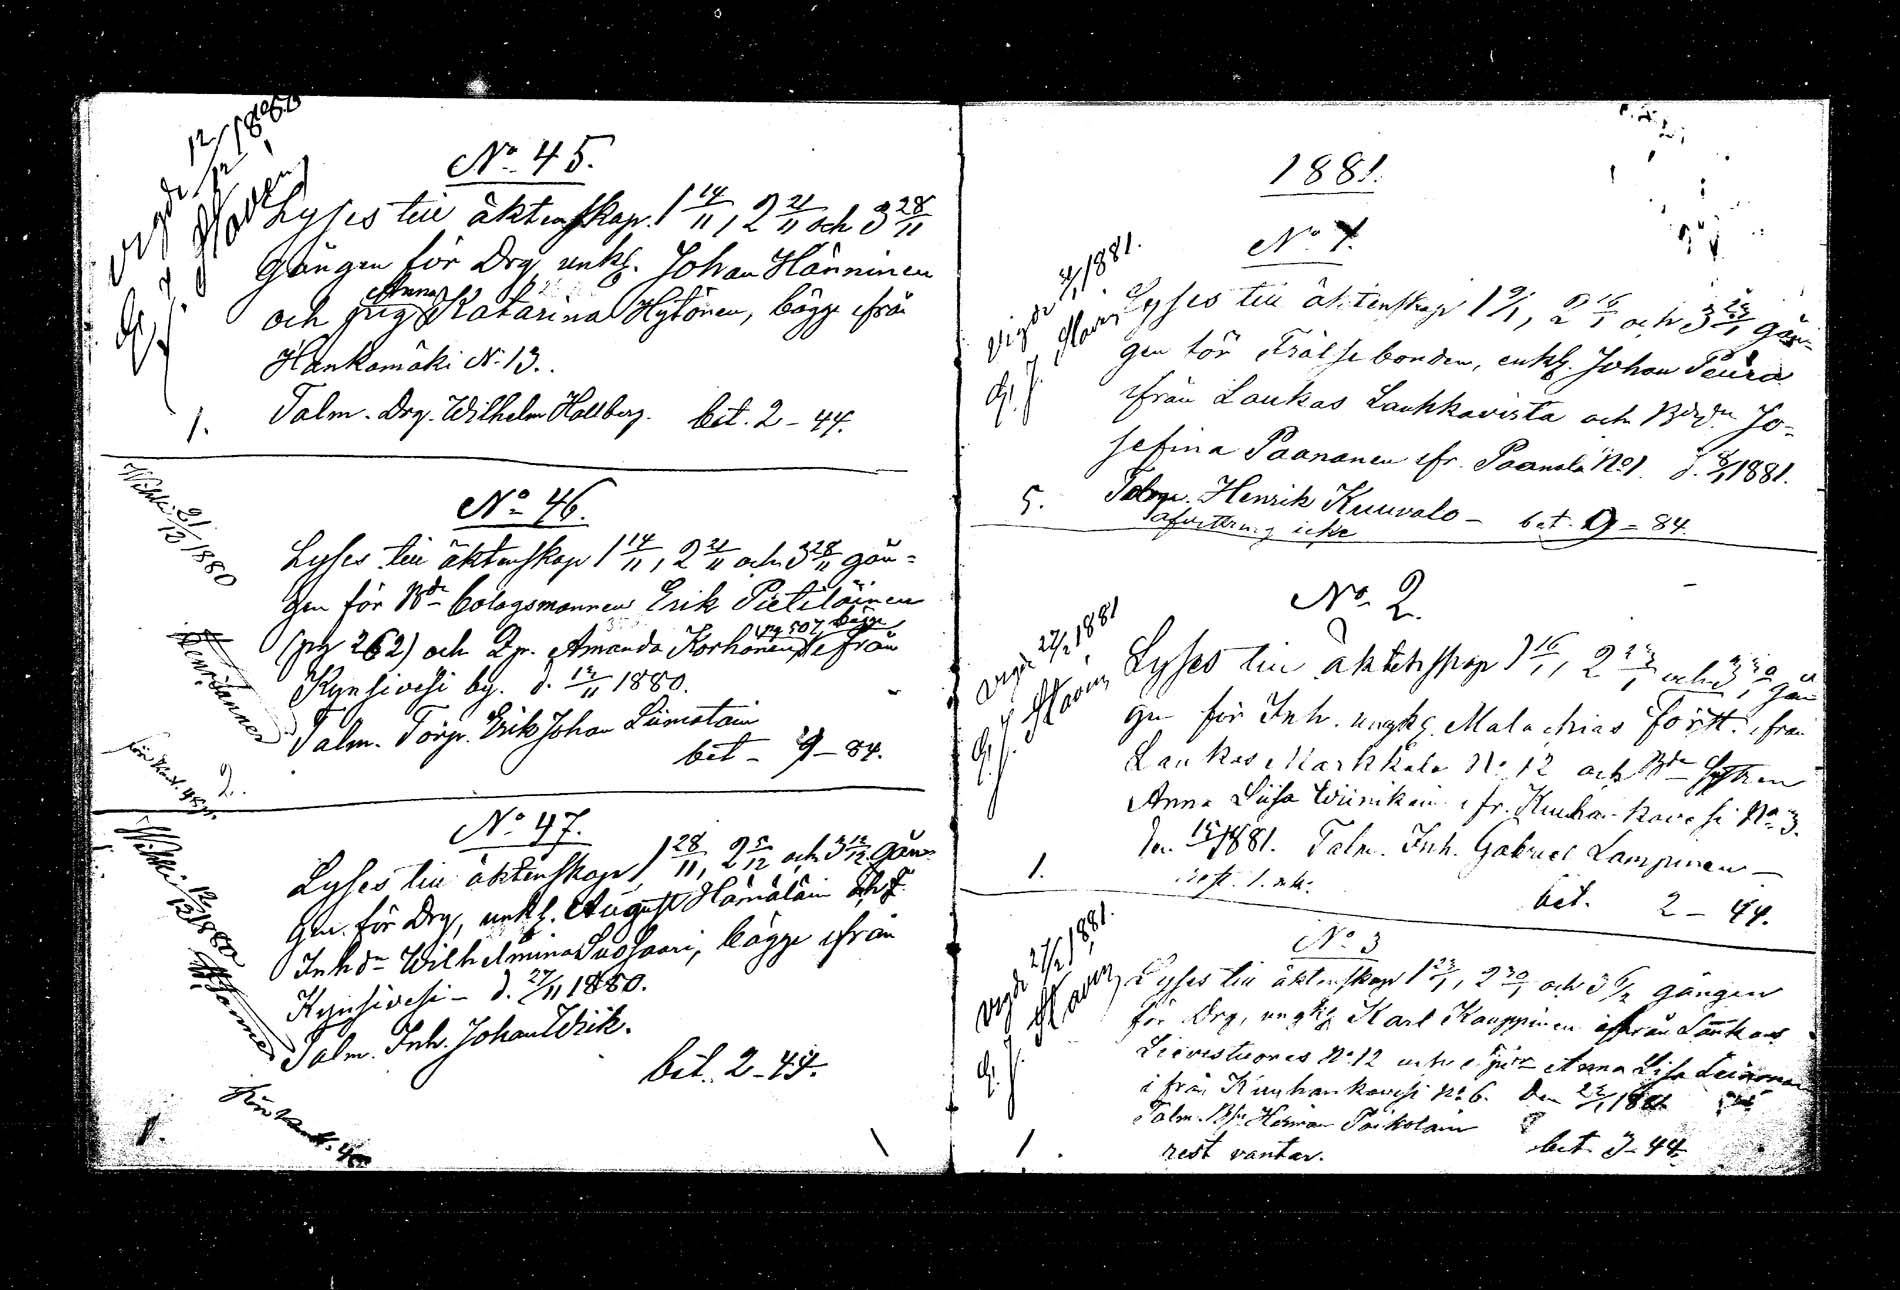 Vigde 12/12 1880
G. J. Hoven
No 45.
Lyses till äktenskap 1 14/11, 2 21/11 och 3 28/11
gången för Drg, unkl. Johan Hänninen
Anna
och pig Katarina Hytönen, bägge ifrån
Hankamäki No 13.
Talm. Drg. Wilhelm Hallberg. bet. 2-44.
1.
Wihki 21/12 1880
No 46.
Lyses till äktenskap 1 14/11, 2 21/11 och 3 28/11 gån=
gen för Bde bolagsmannen Erik Pietiläinen
pag 507, bägge
(pg 262) och Dr. Amanda Korhonen, ifrån
Kynsivesi by. d. 13/11 1880.
Talm. Torp. Erik Johan Liimatain
bet - 9-84.
2.
No 47.
Wihki 12/12 1880
Lyses till äktenskap 1 28/11, 2 5/12 och 3 12/12 gån=
gen för Drg, unkl. August Hämäläin och
Inhdr Wilhelmina Susisaari, bägge ifrån
Kynsivesi - d. 27/11 1880.
Talm. Inh. Johan Wiik.
bet. 2-44.
1.
1881.
No 1.
Vigde 1881.
G. J. Hoven
Lyses till äktenskap 1 9/1, 2 16/1 och 3 23/1 gån=
gen för Frälsebonden, enkl. Johan Peura
ifrån Laukas Laukkavirta och Bdr Jo=
sefina Paananen ifr. Paanala No 1. d. 8/1 1881.
Talm. Henrik Kuuvalo - bet. 9-84.
5.
No 2.
Vigde 27/2 1881
G. J. Hoven
Lyses till äktenskap 1 16/1, 2 23/1 och 3 30/1 gån
gen för Inh. ungkl. Malachias Fortt. ifrån
Laukas Markkala No 12 och Bde
Anna Liisa Wiinikain ifr. Kuuhankavesi No 3.
den 15/1 1881. Talm. Inh. Gabriel Lampinen -
1.
bet. 2-44.
No 3
Vigde 27/2 1881.
G. J. Hoven
Lyses till äktenskap 1 23/1, 2 30/1 och 3 6/2 gången
för Drg, ungkl. Karl Kauppinen ifrån Laukas
Lievestuores No 12 och Anna Lisa Leinonen
ifrån Kuuhankavesi No 6. Den 22/1 1881
Talm. Bs. Herman Paikolain
rest väntar. bet. 2-44.
1.